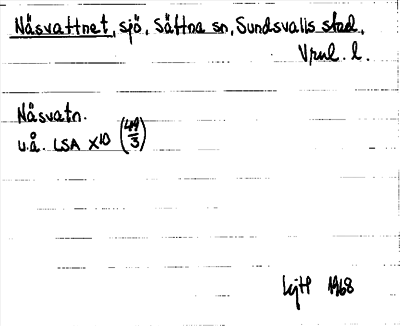 Näsvattnet, sjö, Sättna sn, Sundsvalls stad,
Vnrl. l.
Näsvatn.
u.å. LSA X 10 (49/3)
1968